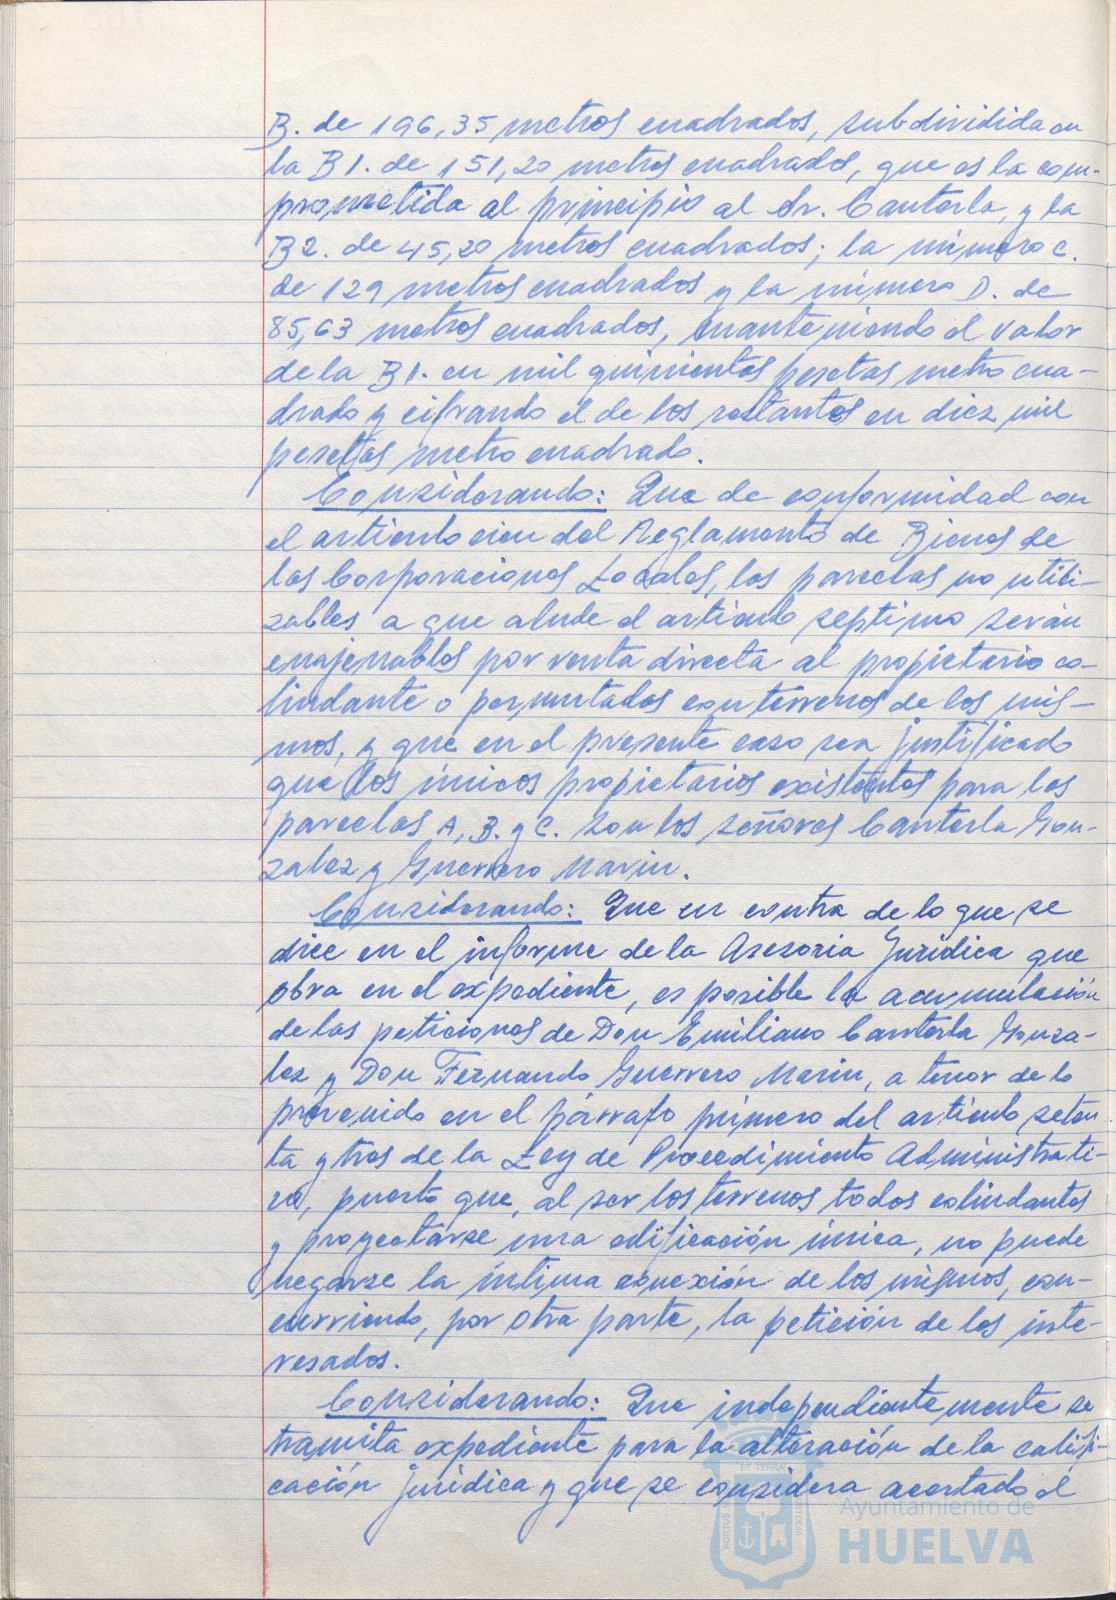 B. de 196,35 metros cuadrados, subdividida en
la B1. de 151,20 metros cuadrados, que es la com-
prometida al principio al Sr. Cantorla, y la
B2. de 45,20 metros cuadrados; la número C.
de 129 metros cuadrados y la número D. de
85,63 metros cuadrados, manteniendo el valor
de la B1. en mil quinientas pesetas metro cua-
drado y cifrando el de los restantes en diez mil
pesetas metro cuadrado.
Considerando: Que de conformidad con
el artículo cien del Reglamento de Bienes de
las Corporaciones Locales, las parcelas no utili-
zables a que alude el artículo séptimo serán
enajenables por venta directa al propietario co-
lindante o permutados con terrenos de los mis-
mos, y que en el presente caso sea justificado
que los únicos propietarios existentes para las
parcelas A, B. y C. son los señores Cantorla Gon-
zalez y Guerrero Marin.
Considerando: Que en contra de lo que se
dice en el informe de la Asesoria Jurídica que
obra en el expediente, es posible la acumulación
de las peticiones de Don Emiliano Cantorla Gonza-
lez y Don Fernando Guerrero Marin, a tenor de lo
prevenido en el párrafo primero del artículo seten
ta y tres de la Ley de Procedimiento Administrati-
vo, puesto que, al ser los terrenos todos colindantes
y proyectarse una edificación única, no puede
negarse la íntima conexión de los mismos, con-
curriendo, por otra parte, la petición de los inte-
resados.
Considerando: Que independientemente se
tramita expediente para la alteración de la califi-
cación jurídica y que se considera acertado el
Ayuntamiento de
HUELVA